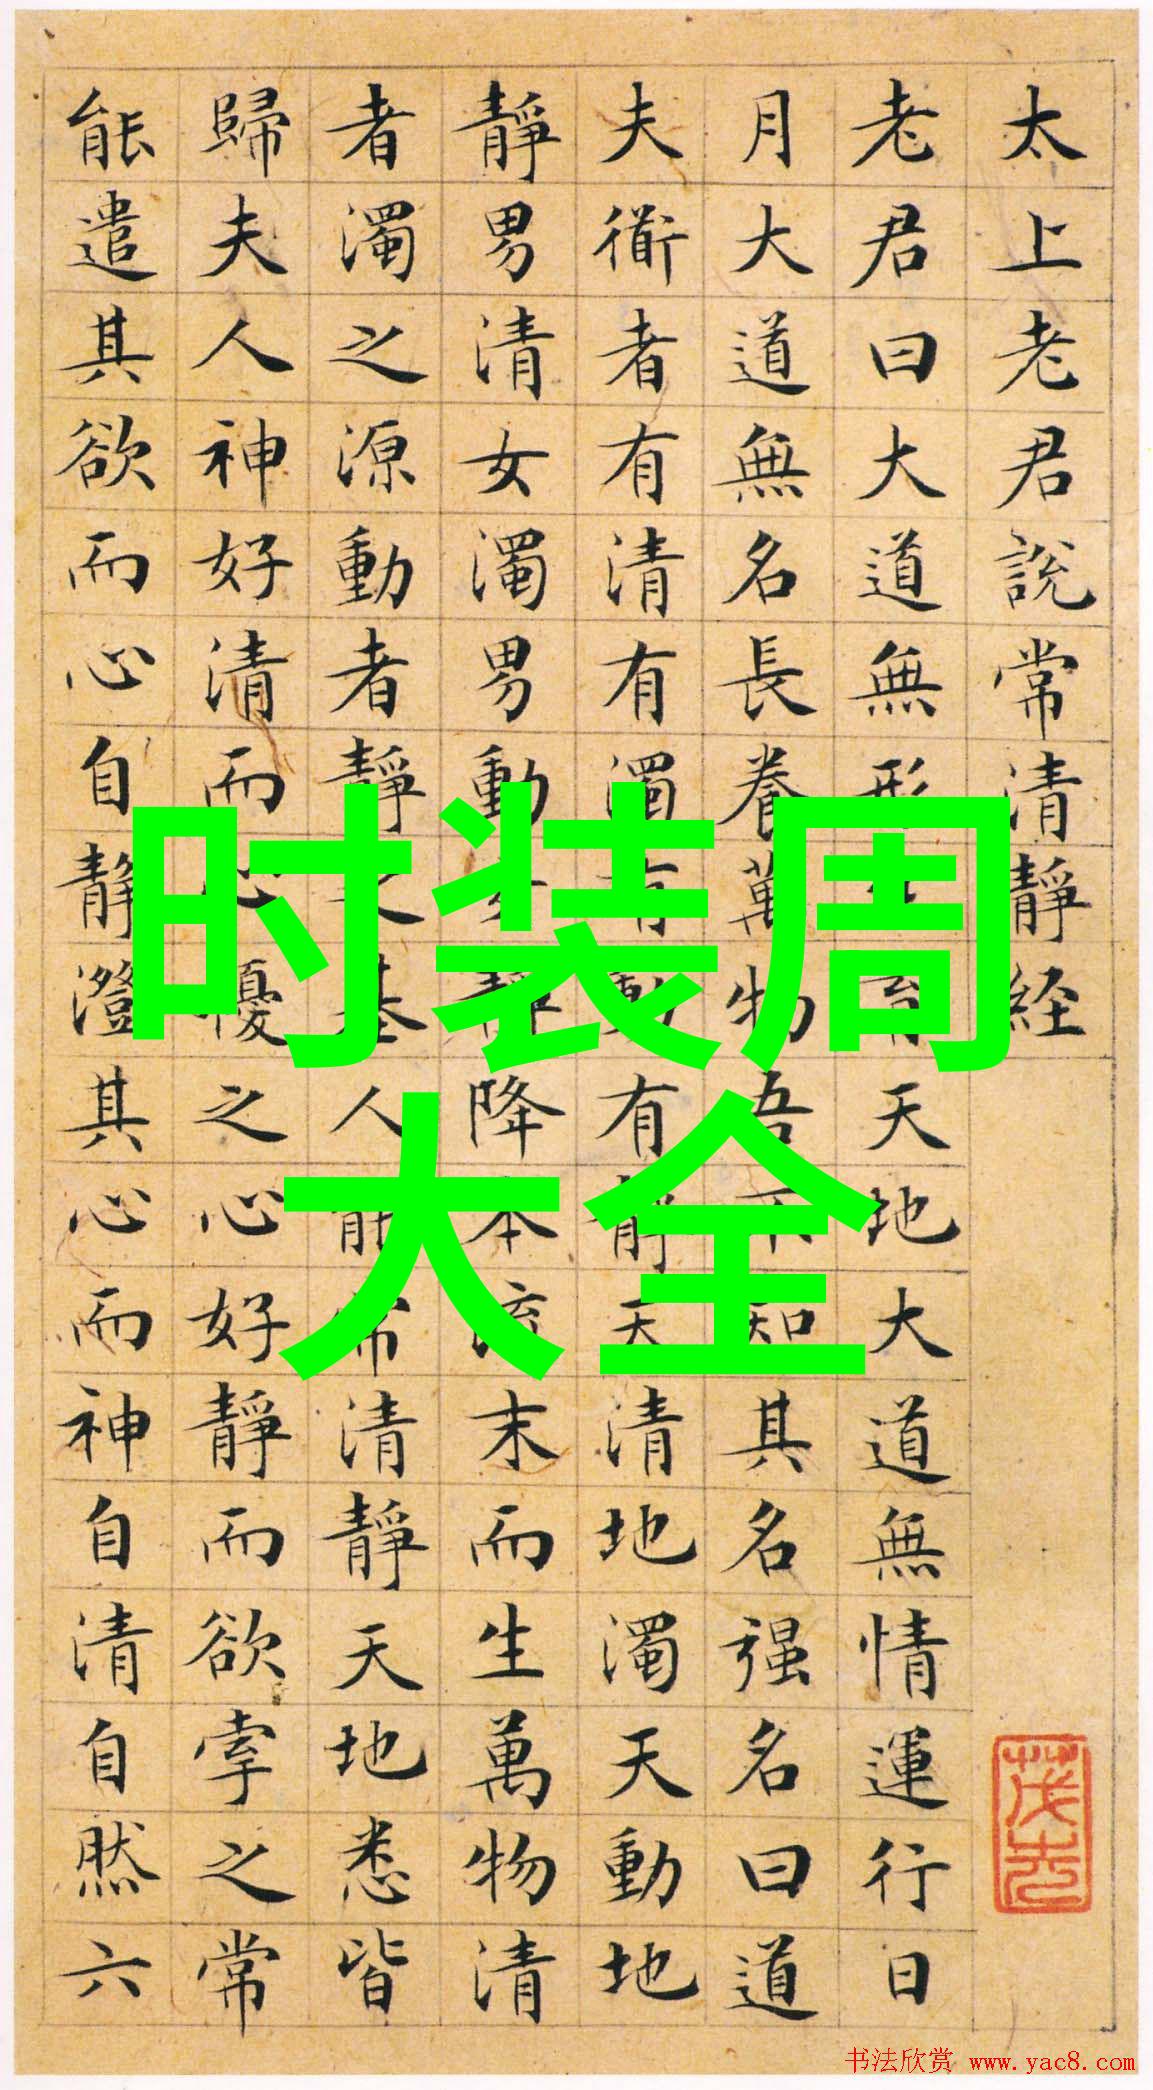 太上老君說常清靜経
老君曰大道無形生育天地大道無情運行日
月大道無名長養萬物吾不知其名强名曰道
夫衜者有清有濁有動有靜天清地濁天動地
靜男清女濁男動女靜降本流末而生萬物清
者濁之源動者靜之基人能常清靜天地悉皆
歸夫人神好清而心擾之心好靜而欲牽之常
能遣其欲而心自靜澄其心而神自清自然六
时装周
大全
书法欣赏 www.yac8.com